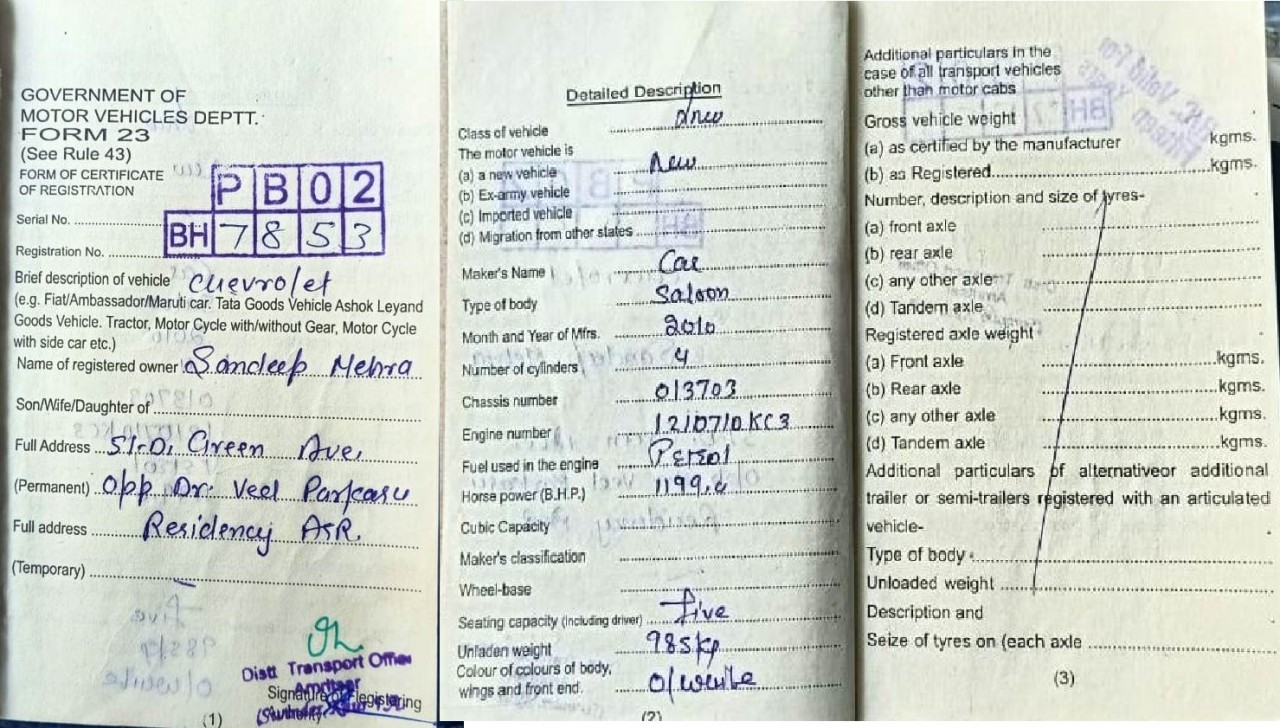 GOVERNMENT OF
MOTOR VEHICLES DEPTT.
FORM 23
(See Rule 43)
FORM OF CERTIFICATE
OF REGISTRATION
PB02
Serial No.
BH 7853
Registration No.
Brief description of vehicle Chevrolet
(e.g. Fiat/Ambassador/Maruti car. Tata Goods Vehicle Ashok Leyand
Goods Vehicle. Tractor, Motor Cycle with/without Gear, Motor Cycle
with side car etc.)
Name of registered owner Sandeep Mehra
Son/Wife/Daughter of
Full Address S.1-D, Green Ave,
(Permanent) Opp. Dr. Veel
Full address Residency ASR.
(Temporary)
Distt Transport Officer
Amritsar
Signature of Registering
(1)
Detailed Description
Class of vehicle
The motor vehicle is
(a) a new vehicle New
(b) Ex-army vehicle
(c) Imported vehicle
(d) Migration from other states
Maker's Name Car
Type of body Saloon
Month and Year of Mfrs. 2010
Number of cylinders 4
Chassis number 013703
Engine number 121D710KC3
Fuel used in the engine Petrol
Horse power (B.H.P.) 1199.c
Cubic Capacity
Maker's classification
Wheel-base
Seating capacity (including driver) five
Unladen weight 985kg
Colour of colours of body,
wings and front end. O/white
(2)
Additional particulars in the
case of all transport vehicles
other than motor cabs
Gross vehicle weight
(a) as certified by the manufacturer kgms.
(b) as Registered kgms.
Number, description and size of tyres-
(a) front axle
(b) rear axle
(c) any other axle
(d) Tandem axle
Registered axle weight
(a) Front axle kgms.
(b) Rear axle kgms.
(c) any other axle kgms.
(d) Tandem axle kgms.
Additional particulars of alternativeor additional
trailer or semi-trailers registered with an articulated
vehicle-
Type of body
Unloaded weight
Description and
Seize of tyres on (each axle
(3)